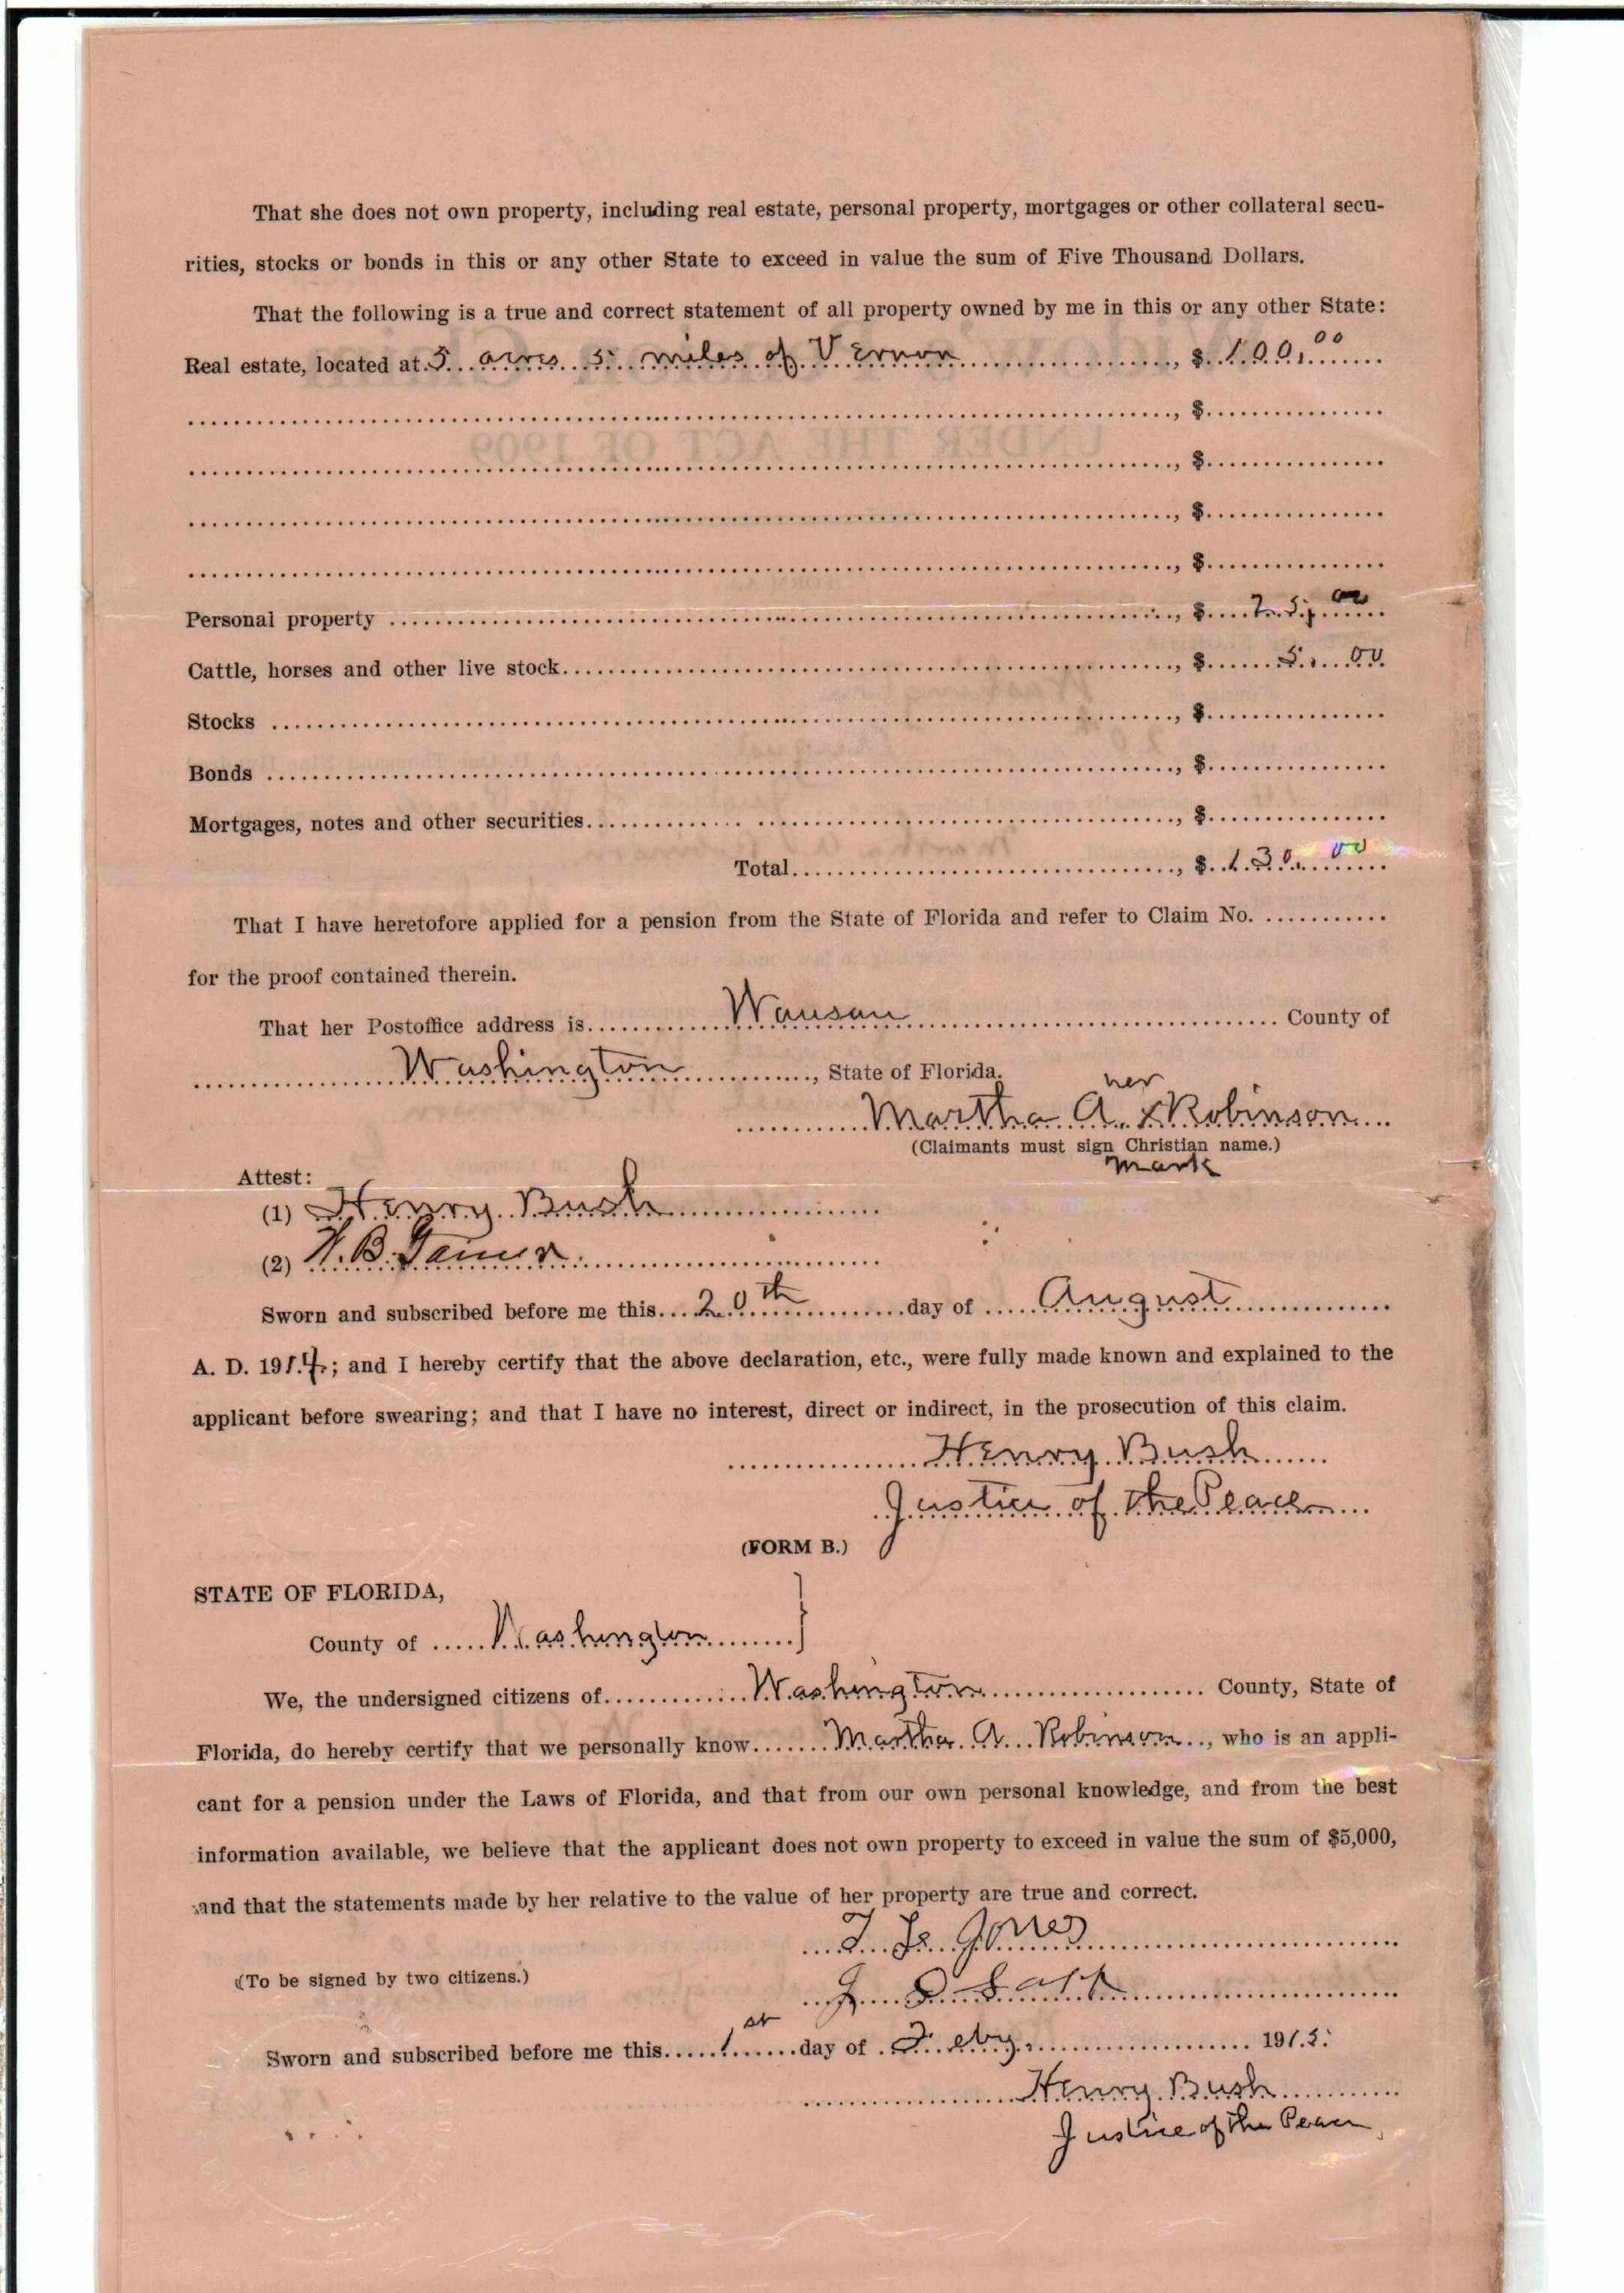 That she does not own property, including real estate, personal property, mortgages or other collateral secu-
rities, stocks or bonds in this or any other State to exceed in value the sum of Five Thousand Dollars.
That the following is a true and correct statement of all property owned by me in this or any other State:
Real estate, located at 5 acres 5 miles of Vernon, $ 100.00
, $
UNDER THE ACT OF 1909
, $
, $
, $
Personal property, $ 25.00
Cattle, horses and other live stock, $ 5.00
Stocks, $
Bonds, $
Mortgages, notes and other securities, $
Total, $ 130.00
That I have heretofore applied for a pension from the State of Florida and refer to Claim No.
for the proof contained therein.
That her Postoffice address is Wausau County of
Washington, State of Florida.
her
Martha A. x Robinson
(Claimants must sign Christian name.)
mark
Attest:
(1) Henry Bush
(2) W. B. Gainer
Sworn and subscribed before me this 20th day of August
A. D. 1914; and I hereby certify that the above declaration, etc., were fully made known and explained to the
applicant before swearing; and that I have no interest, direct or indirect, in the prosecution of this claim.
Henry Bush
Justice of the Peace
(FORM B.)
STATE OF FLORIDA,
County of Washington
We, the undersigned citizens of Washington County, State of
Florida, do hereby certify that we personally know Martha A. Robinson, who is an appli-
cant for a pension under the Laws of Florida, and that from our own personal knowledge, and from the best
information available, we believe that the applicant does not own property to exceed in value the sum of $5,000,
and that the statements made by her relative to the value of her property are true and correct.
Jones
(To be signed by two citizens.)
Sworn and subscribed before me this 1st day of Feby. 1915.
Henry Bush
Justice of the Peace